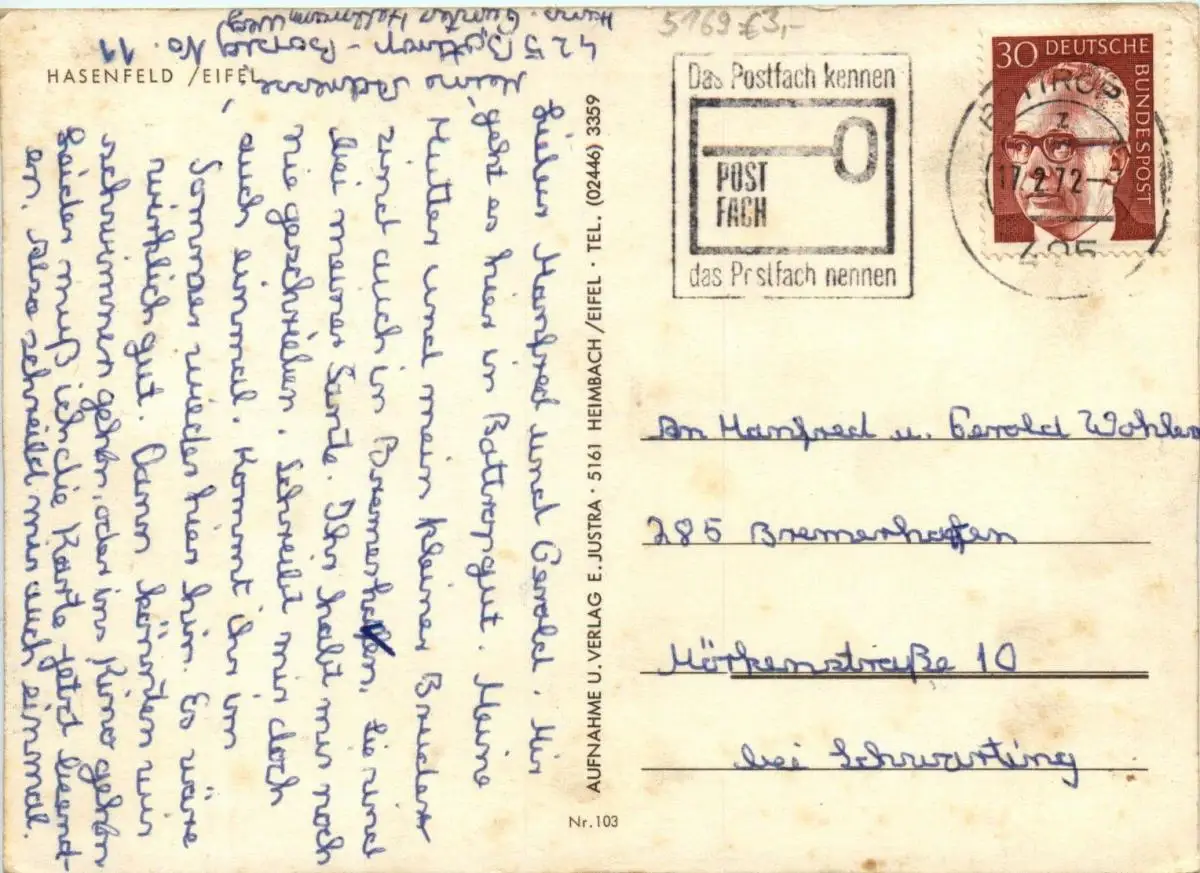 HASENFELD /EIFEL
5169 €3,-
Das Postfach kennen
POST
FACH
das Postfach nennen
30 DEUTSCHE
BUNDESPOST
BOTTROP
z
17.2.72
425
Meine Adresse
425 Bottrop - Boy No. 11
Hans-
Lieber Manfred und Gerold. Mir
geht es hier in Bottropgut. Meine
Mutter und mein kleiner Bruder
sind auch in Bremerhafen, sie sind
bei meiner Tante. Ihr habt mir noch
nie geschrieben. Schreibt mir doch
auch einmal. Kommt ihr im
Sommer wieder hier hin. Es wäre
wirklich gut. Dann könnten wir
schwimmen gehen, oder ins Kino gehen
Leider muß ich die Karte jetzt beend-
en. Also schreibt mir auch einmal.
AUFNAHME U. VERLAG E. JUSTRA · 5161 HEIMBACH /EIFEL · TEL. (02446) 3359
Nr. 103
An Manfred u. Gerold Wohlem
285 Bremerhafen
Mörkenstraße 10
bei Schwarting